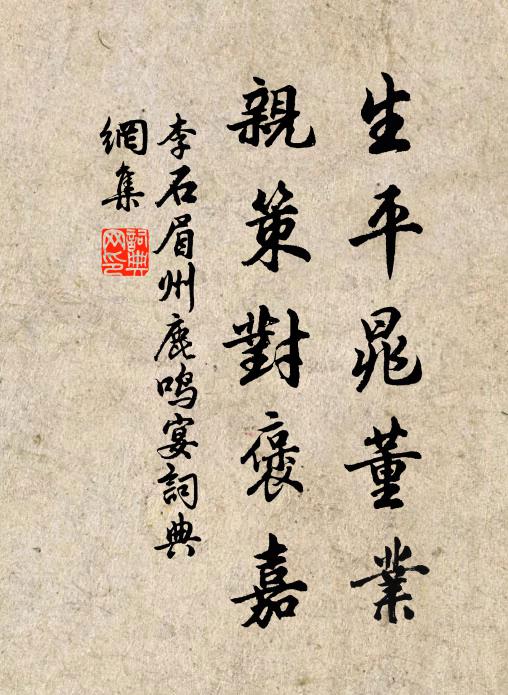 生平晁董業
親策對褒嘉
李石眉州鹿鳴宴詞典
網集
詞典网印